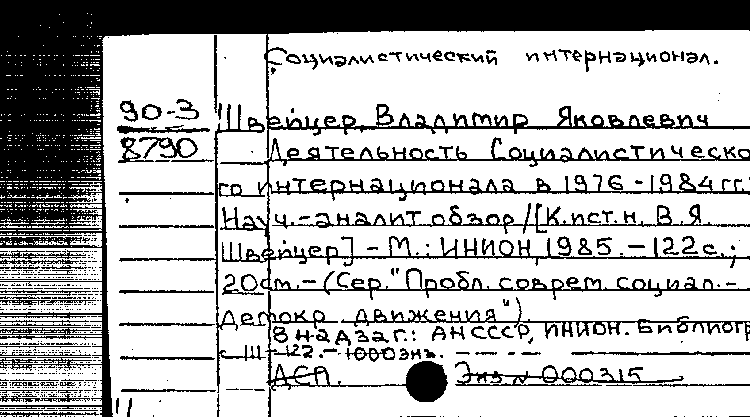 Социалистический интернационал.
90-3
8790
Швейцер, Владимир Яковлевич
Деятельность Социалистическо
го интернационала в 1976-1984 гг.:
Науч.-аналит обзор /[К.ист.н. В.Я.
Швейцер] - М.: ИНИОН, 1985. - 122 с.;
20 см. - (Сер. "Пробл. соврем. социал.-
демокр. движения").
В надзаг.: АН СССР, ИНИОН. Библиогр
122. - 1000 экз.
ДСП. Экз. N 000315